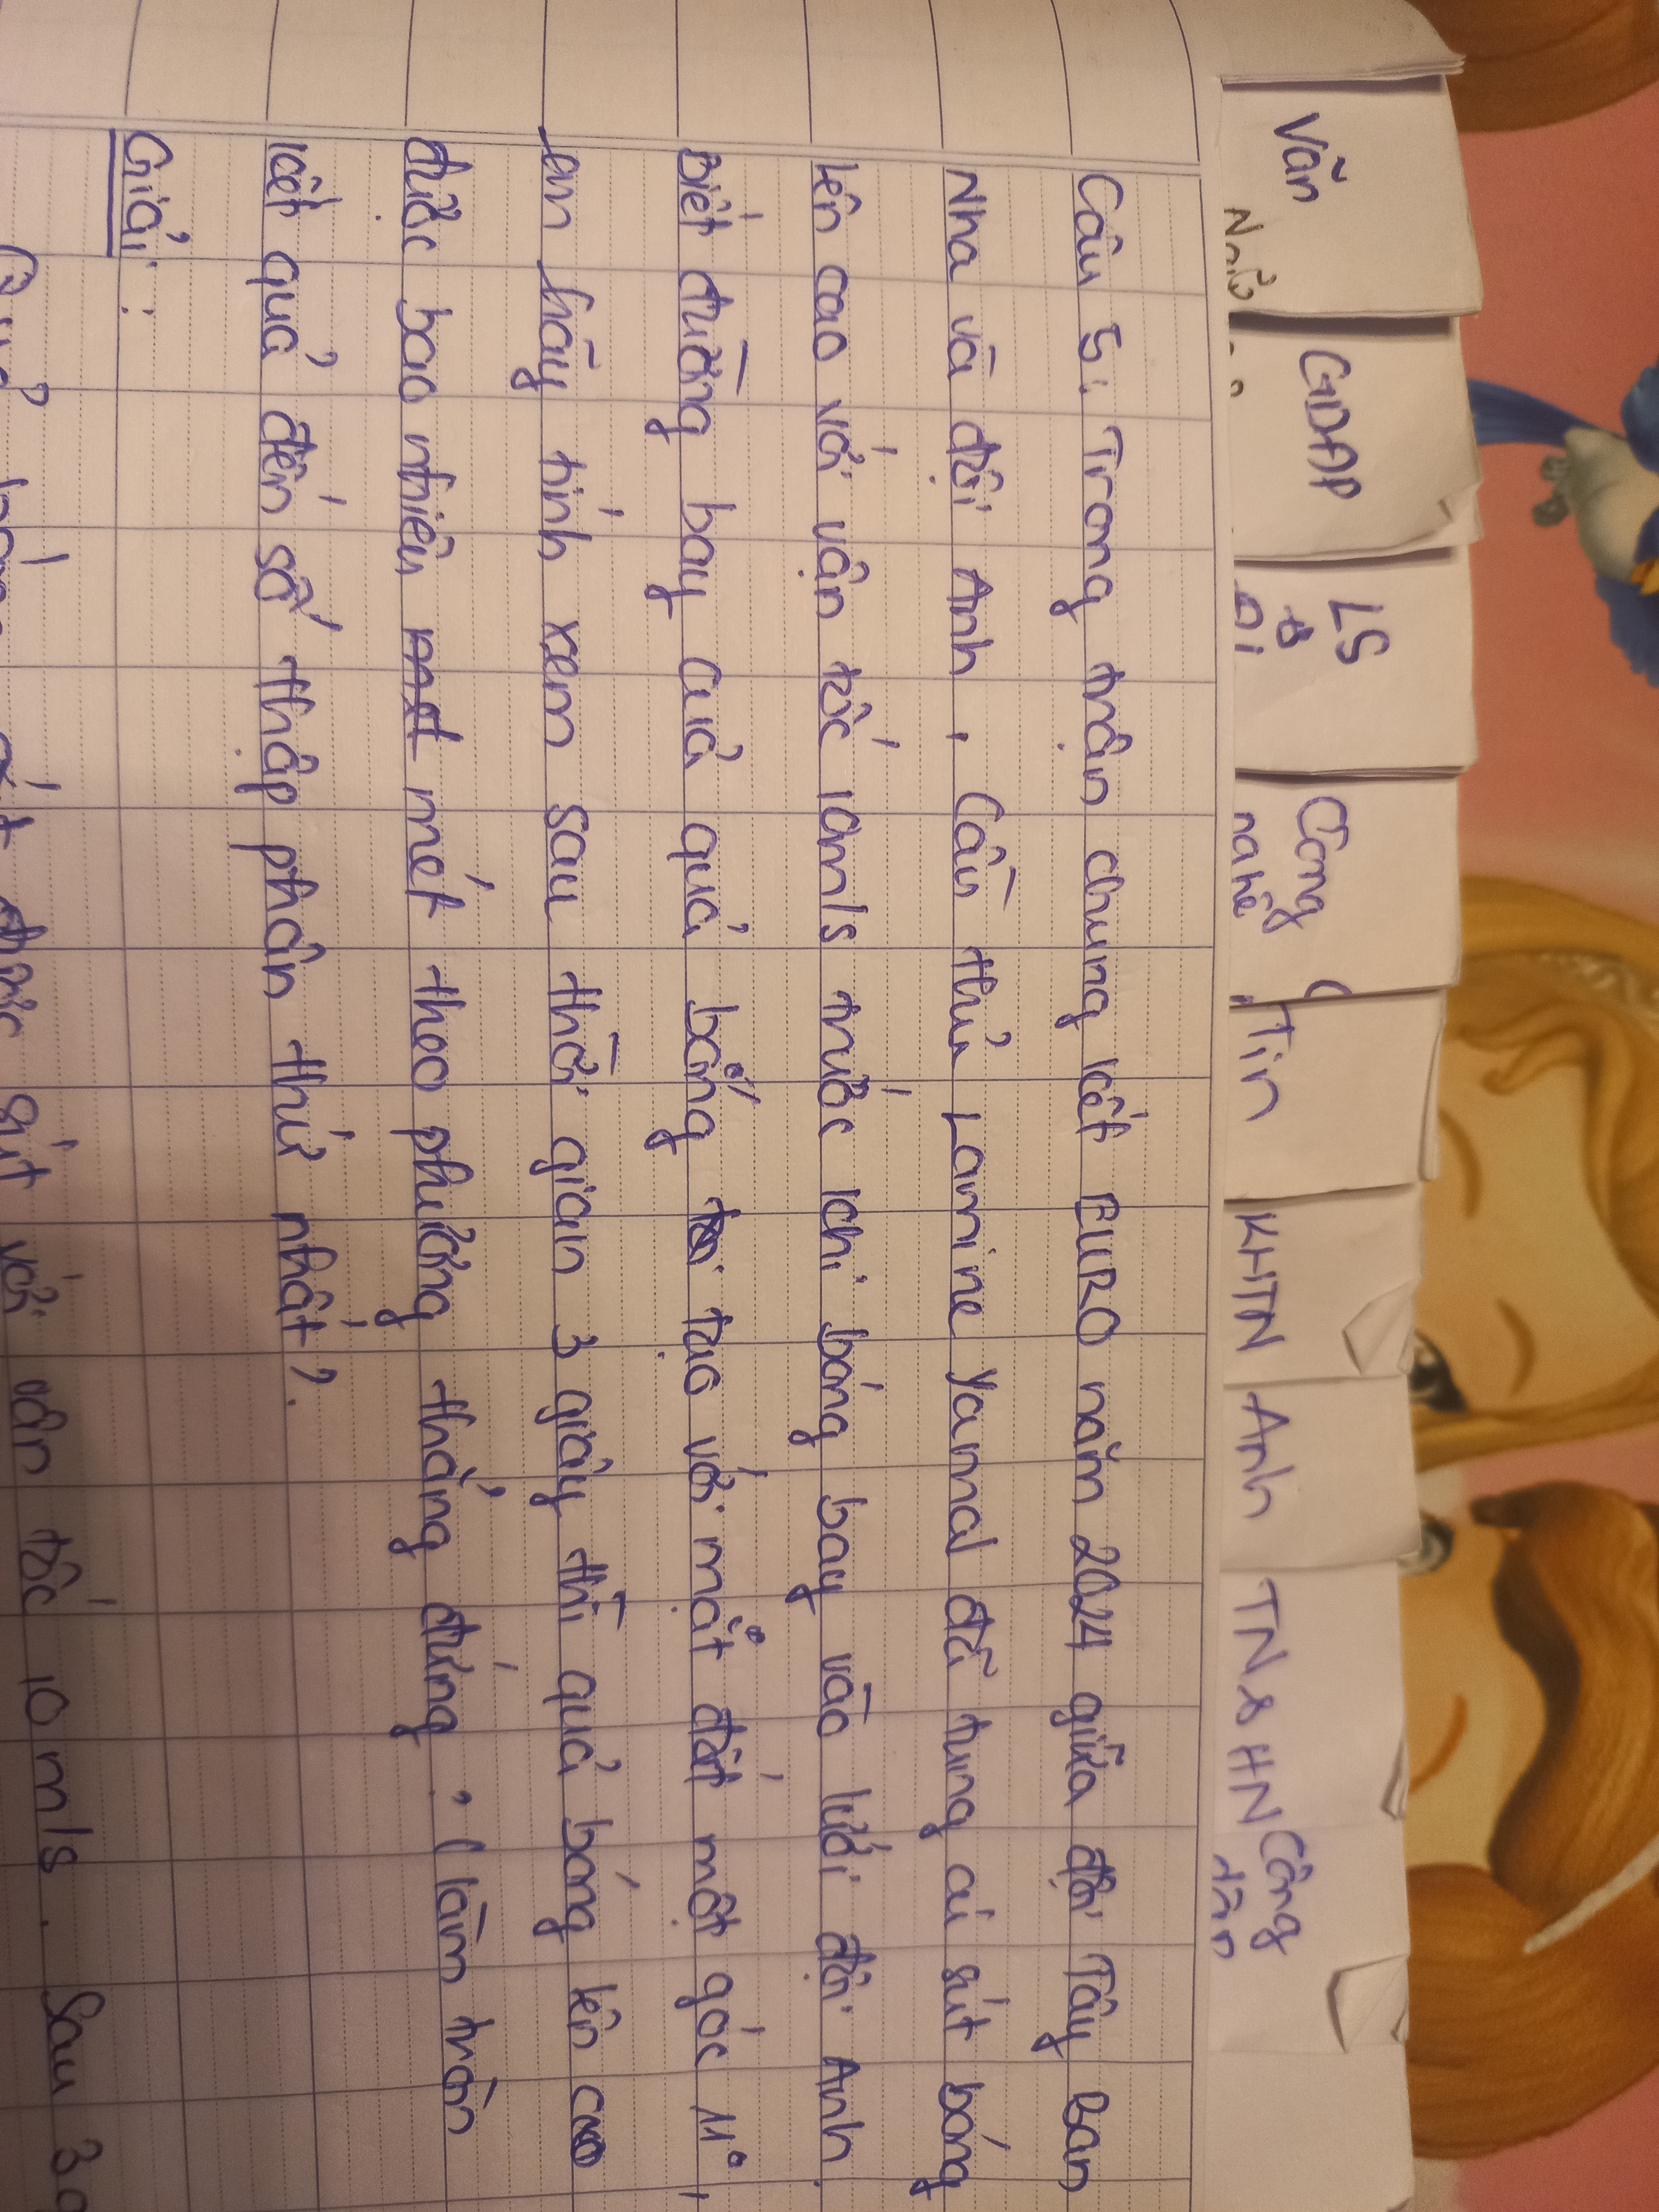 Văn
GDAP
LS
&
ĐL
Công
nghệ
Tin
KHTN
Anh
TN & HN
Công
dân
Câu 5: Trong trận chung kết EURO năm 2024 giữa đội Tây Ban
Nha và đội Anh, Cầu thủ Lamine Yamal đã tung cú sút bóng
lên cao với vận tốc 10m/s trước khi bóng bay vào lưới đội Anh.
Biết đường bay của quả bóng tạo với mặt đất một góc 11°,
em hãy tính xem sau thời gian 3 giây thì quả bóng lên cao
được bao nhiêu mét theo phương thẳng đứng? (làm tròn
kết quả đến số thập phân thứ nhất?.
Giải:
Quả bóng được sút với vận tốc 10m/s. Sau 3